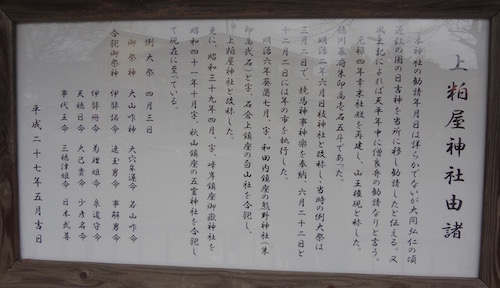 上粕屋神社由諸
本神社の勧請年月日は詳らかでないが大同弘仁の頃
近江の国の日吉神を当所に移し勧請したと伝える。又
風土記によれば天平年中に僧良弁の勧請なりと言う。
元禄四年幸末社殿を再建し、山王権現と称した。
徳川幕府朱印高壱石五斗であった。
明治二年六月日枝神社と改称し、当時の例大祭は
三月二日で、競馬神事神楽を奉納、六月二十二日と
十二月二日には年の市を執行した。
明治六年癸酉七月、字、和田内鎮座の熊野神社(朱
印高弐石)と字、石倉上鎮座の白山社を合祀し、
上粕屋神社と改称した。
更に、昭和三十九年四月、字、峰岸鎮座御嶽神社を
昭和四十一年十月字、秋山鎮座の五霊神社を合祀し
て現在に至っている。
例大祭 四月三日
御祭神 大山咋神 大穴牟遅命 若山咋命
合祀御祭神 伊弉諾命 速玉男命 事解男命
伊弉冊命 菊理姫命 泉道守命
天穂日命 大己貴命 少彦名命
事代主命 三穂津姫命 日本武尊
平成二十七年五月吉日